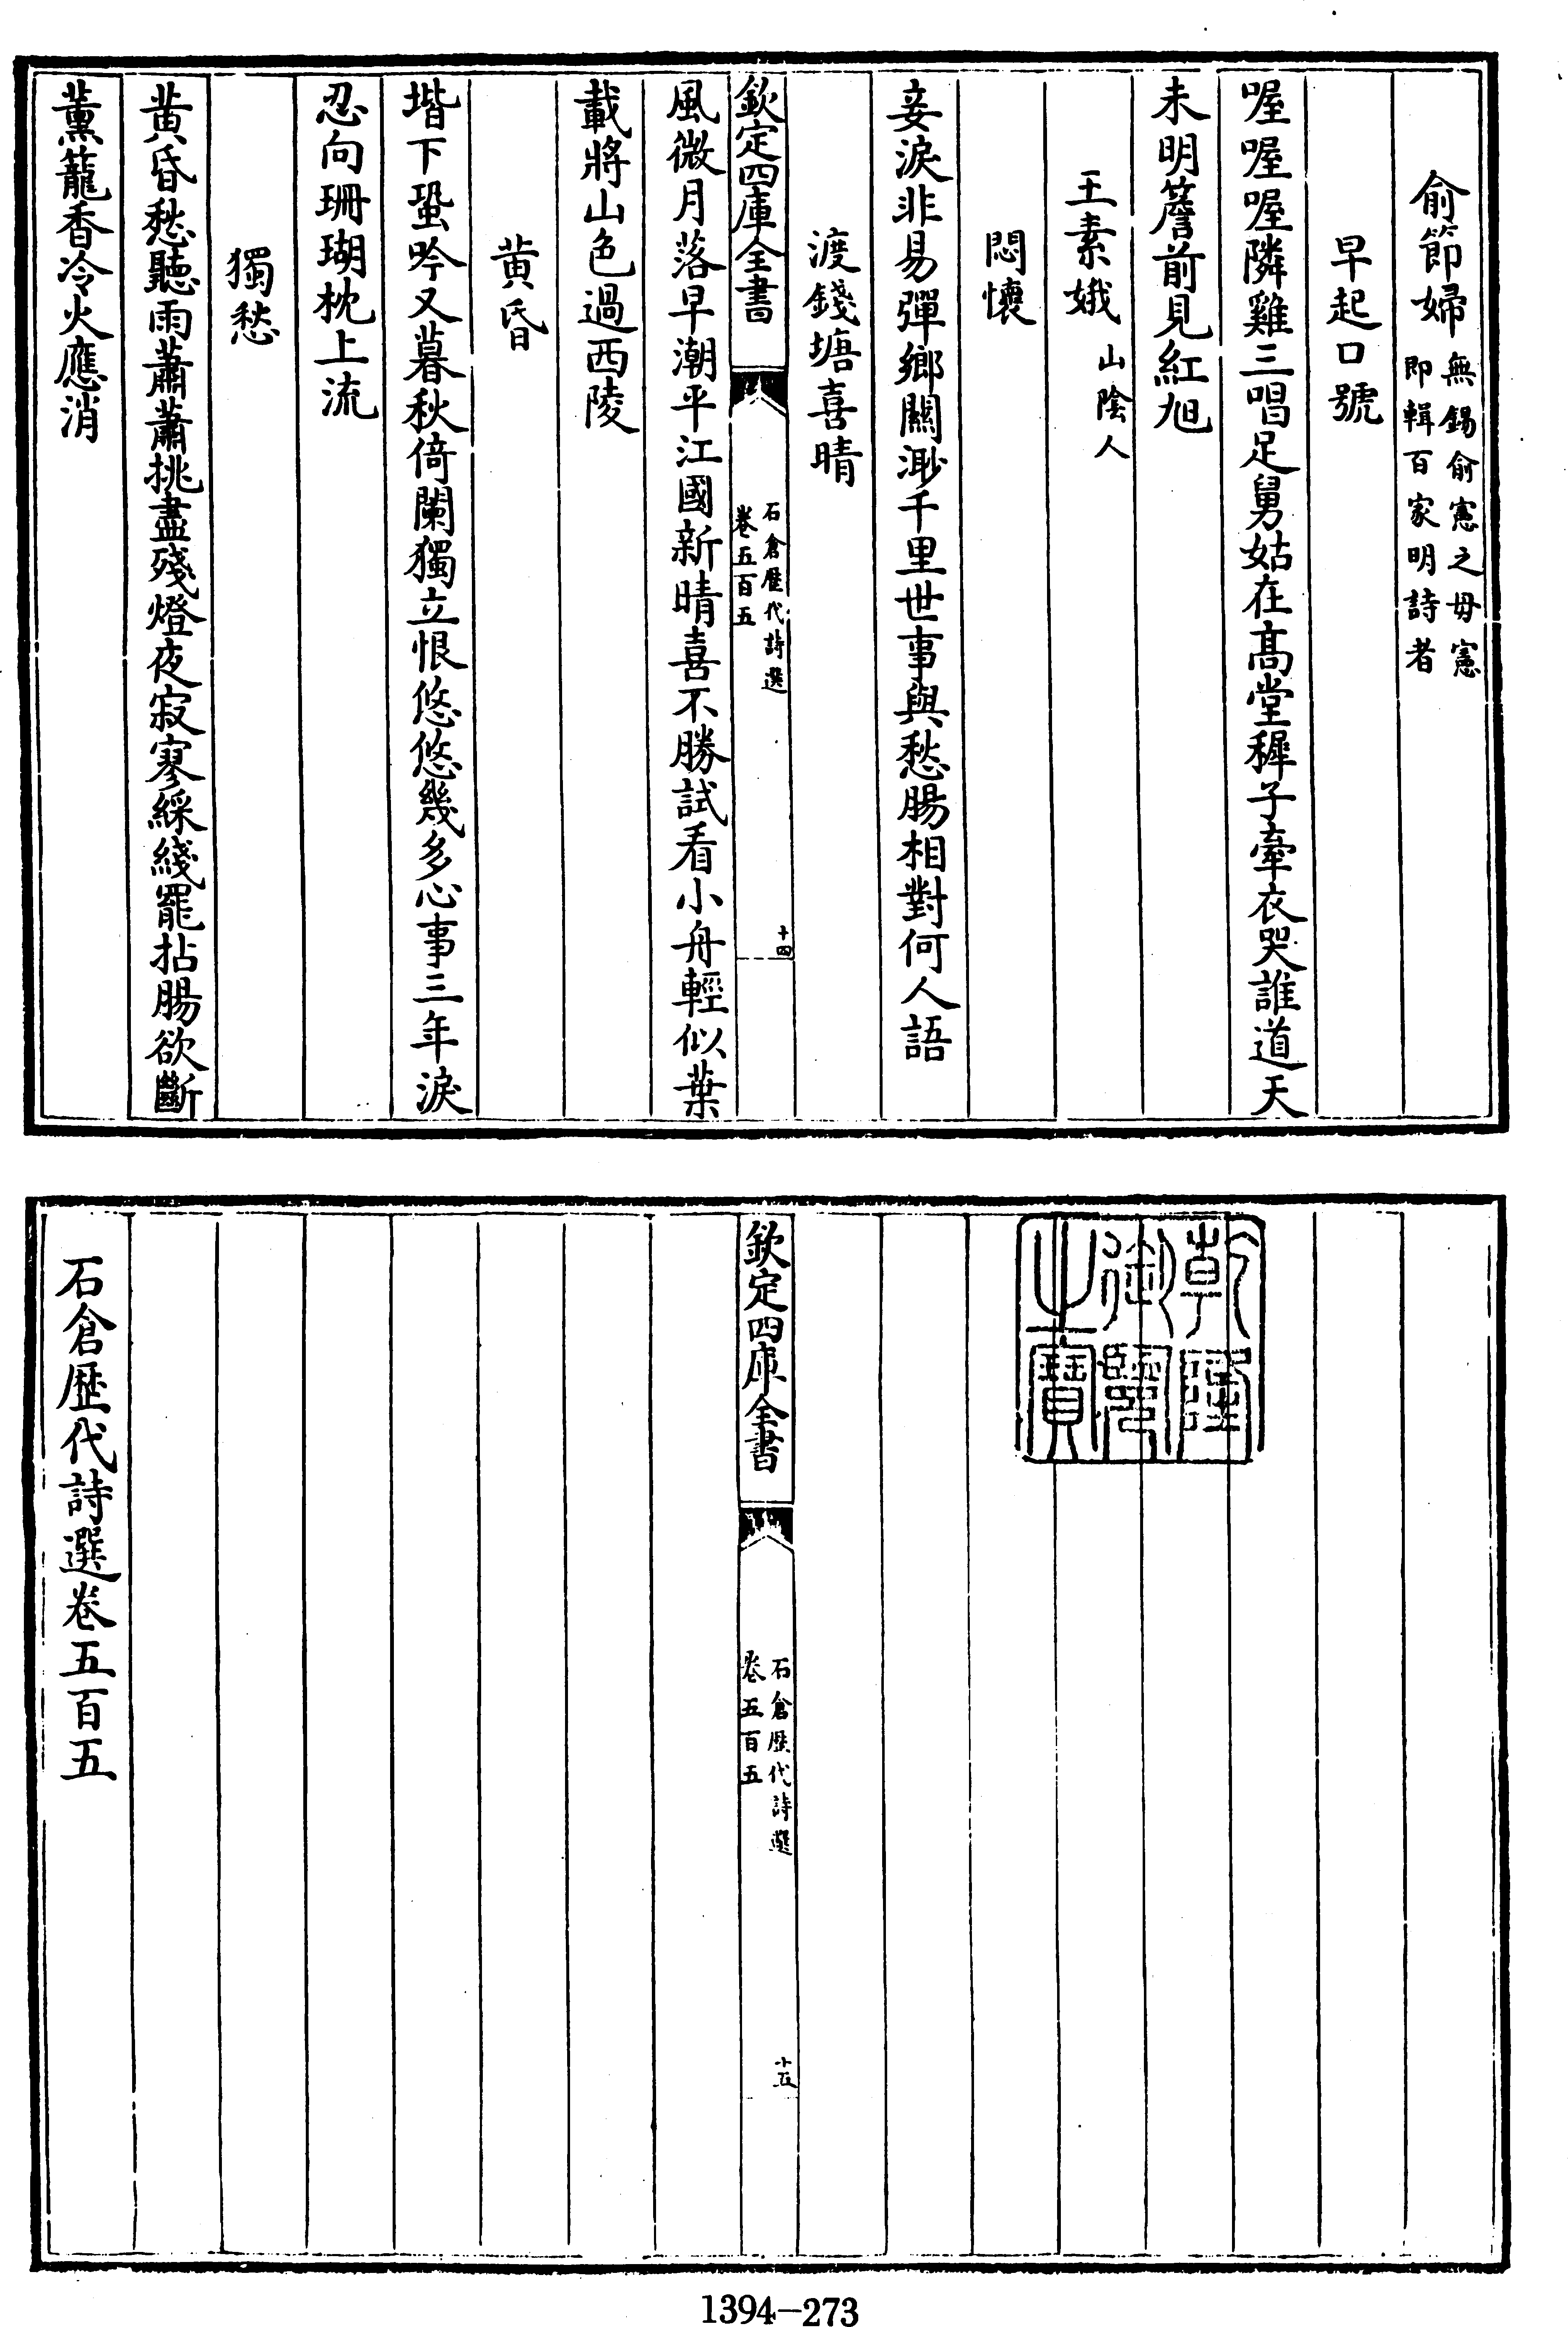 俞節婦無錫俞憲之母憲
即輯百家明詩者
早起口號
喔喔喔隣雞三唱足舅姑在髙堂穉子牽衣哭誰道天
未明簷前見紅旭
王素娥山陰人
悶懐
妾淚非易彈鄉關渺千里世事與愁腸相對何人語
渡錢塘喜晴
欽定四庫全書
石倉歴代詩選
卷五百五
十四
風微月落早潮平江國新晴喜不勝試看小舟輕似葉
載將山色過西陵
黄昏
堦下蛩吟又暮秋倚闌獨立恨悠悠幾多心事三年淚
忍向珊瑚枕上流
獨愁
黄昏愁聽雨蕭蕭挑盡殘燈夜寂寥綵綫罷拈腸欲斷
薰籠香冷火應消
乾隆
御覽
之寶
欽定四庫全書
石倉歴代詩選
卷五百五
十五
石倉歴代詩選卷五百五
1394-273